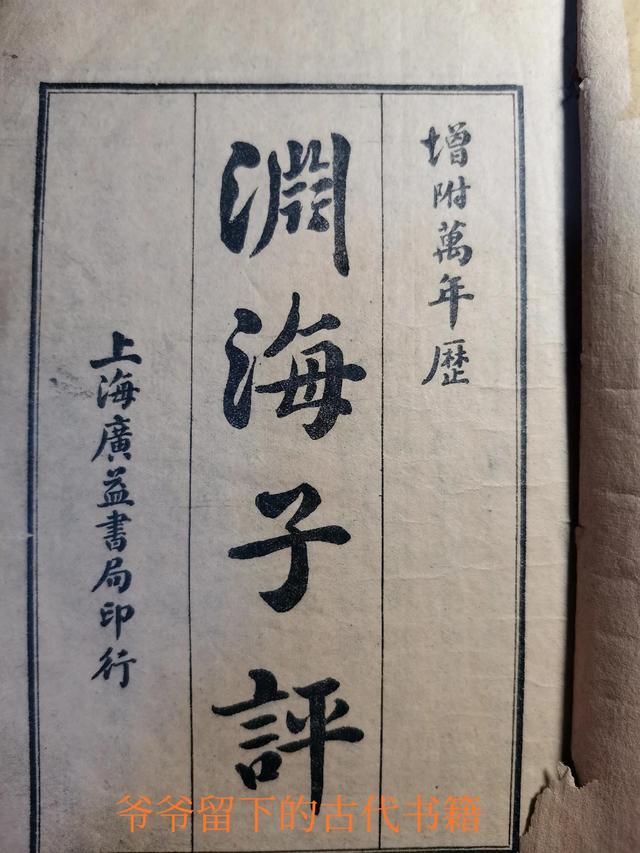 增附萬年歴
淵海子評
上海廣益書局印行
爷爷留下的古代书籍